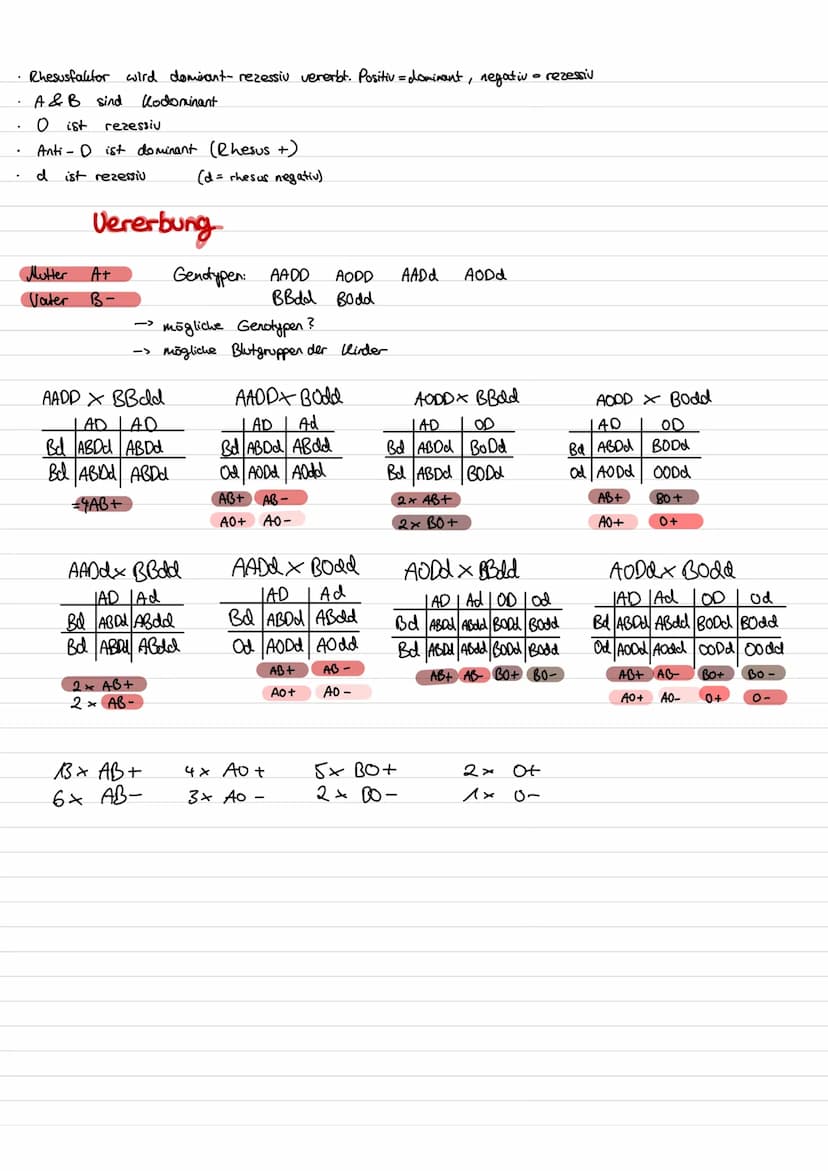 · Rhesusfaktor wird dominant-rezessiv vererbt. Positiv = dominant, negativ = rezessiv
· A & B sind Kodominant
· O ist rezessiv
· Anti-D ist dominant (Rhesus +)
· d ist rezessiv (d = rhesus negativ)
Vererbung
Mutter A+ Genotypen: AADD AODD AADd AODd
Vater B- BBdd BOdd
-> mögliche Genotypen?
-> mögliche Blutgruppen der Kinder
AADD x BBdd AADD x BOdd AODD x BBdd AODD x BOdd
AD AD AD Ad AD OD AD OD
Bd ABDd ABDd Bd ABDd ABdd Bd ABDd BODd Bd ABDd BODd
Bd ABDd ABDd Od AODd AOdd Bd ABDd BODd Od AODd OODd
=4AB+ AB+ AB- 2x AB+ AB+ BO+
AO+ AO- 2x BO+ AO+ O+
AADd x BBdd AADd x BOdd AODd x BBdd AODd x BOdd
AD Ad AD Ad AD Ad OD Od AD Ad OD Od
Bd ABDd ABdd Bd ABDd ABdd Bd ABDd ABdd BODd BOdd Bd ABDd ABdd BODd BOdd
Bd ABDd ABdd Od AODd AOdd Bd ABDd ABdd BODd BOdd Od AODd AOdd OODd OOdd
2x AB+ AB+ AB- AB+ AB- BO+ BO- AB+ AB- BO+ BO-
2x AB- AO+ AO- AO+ AO- O+ O-
13x AB+ 4x AO+ 5x BO+ 2x O+
6x AB- 3x AO- 2x BO- 1x O-